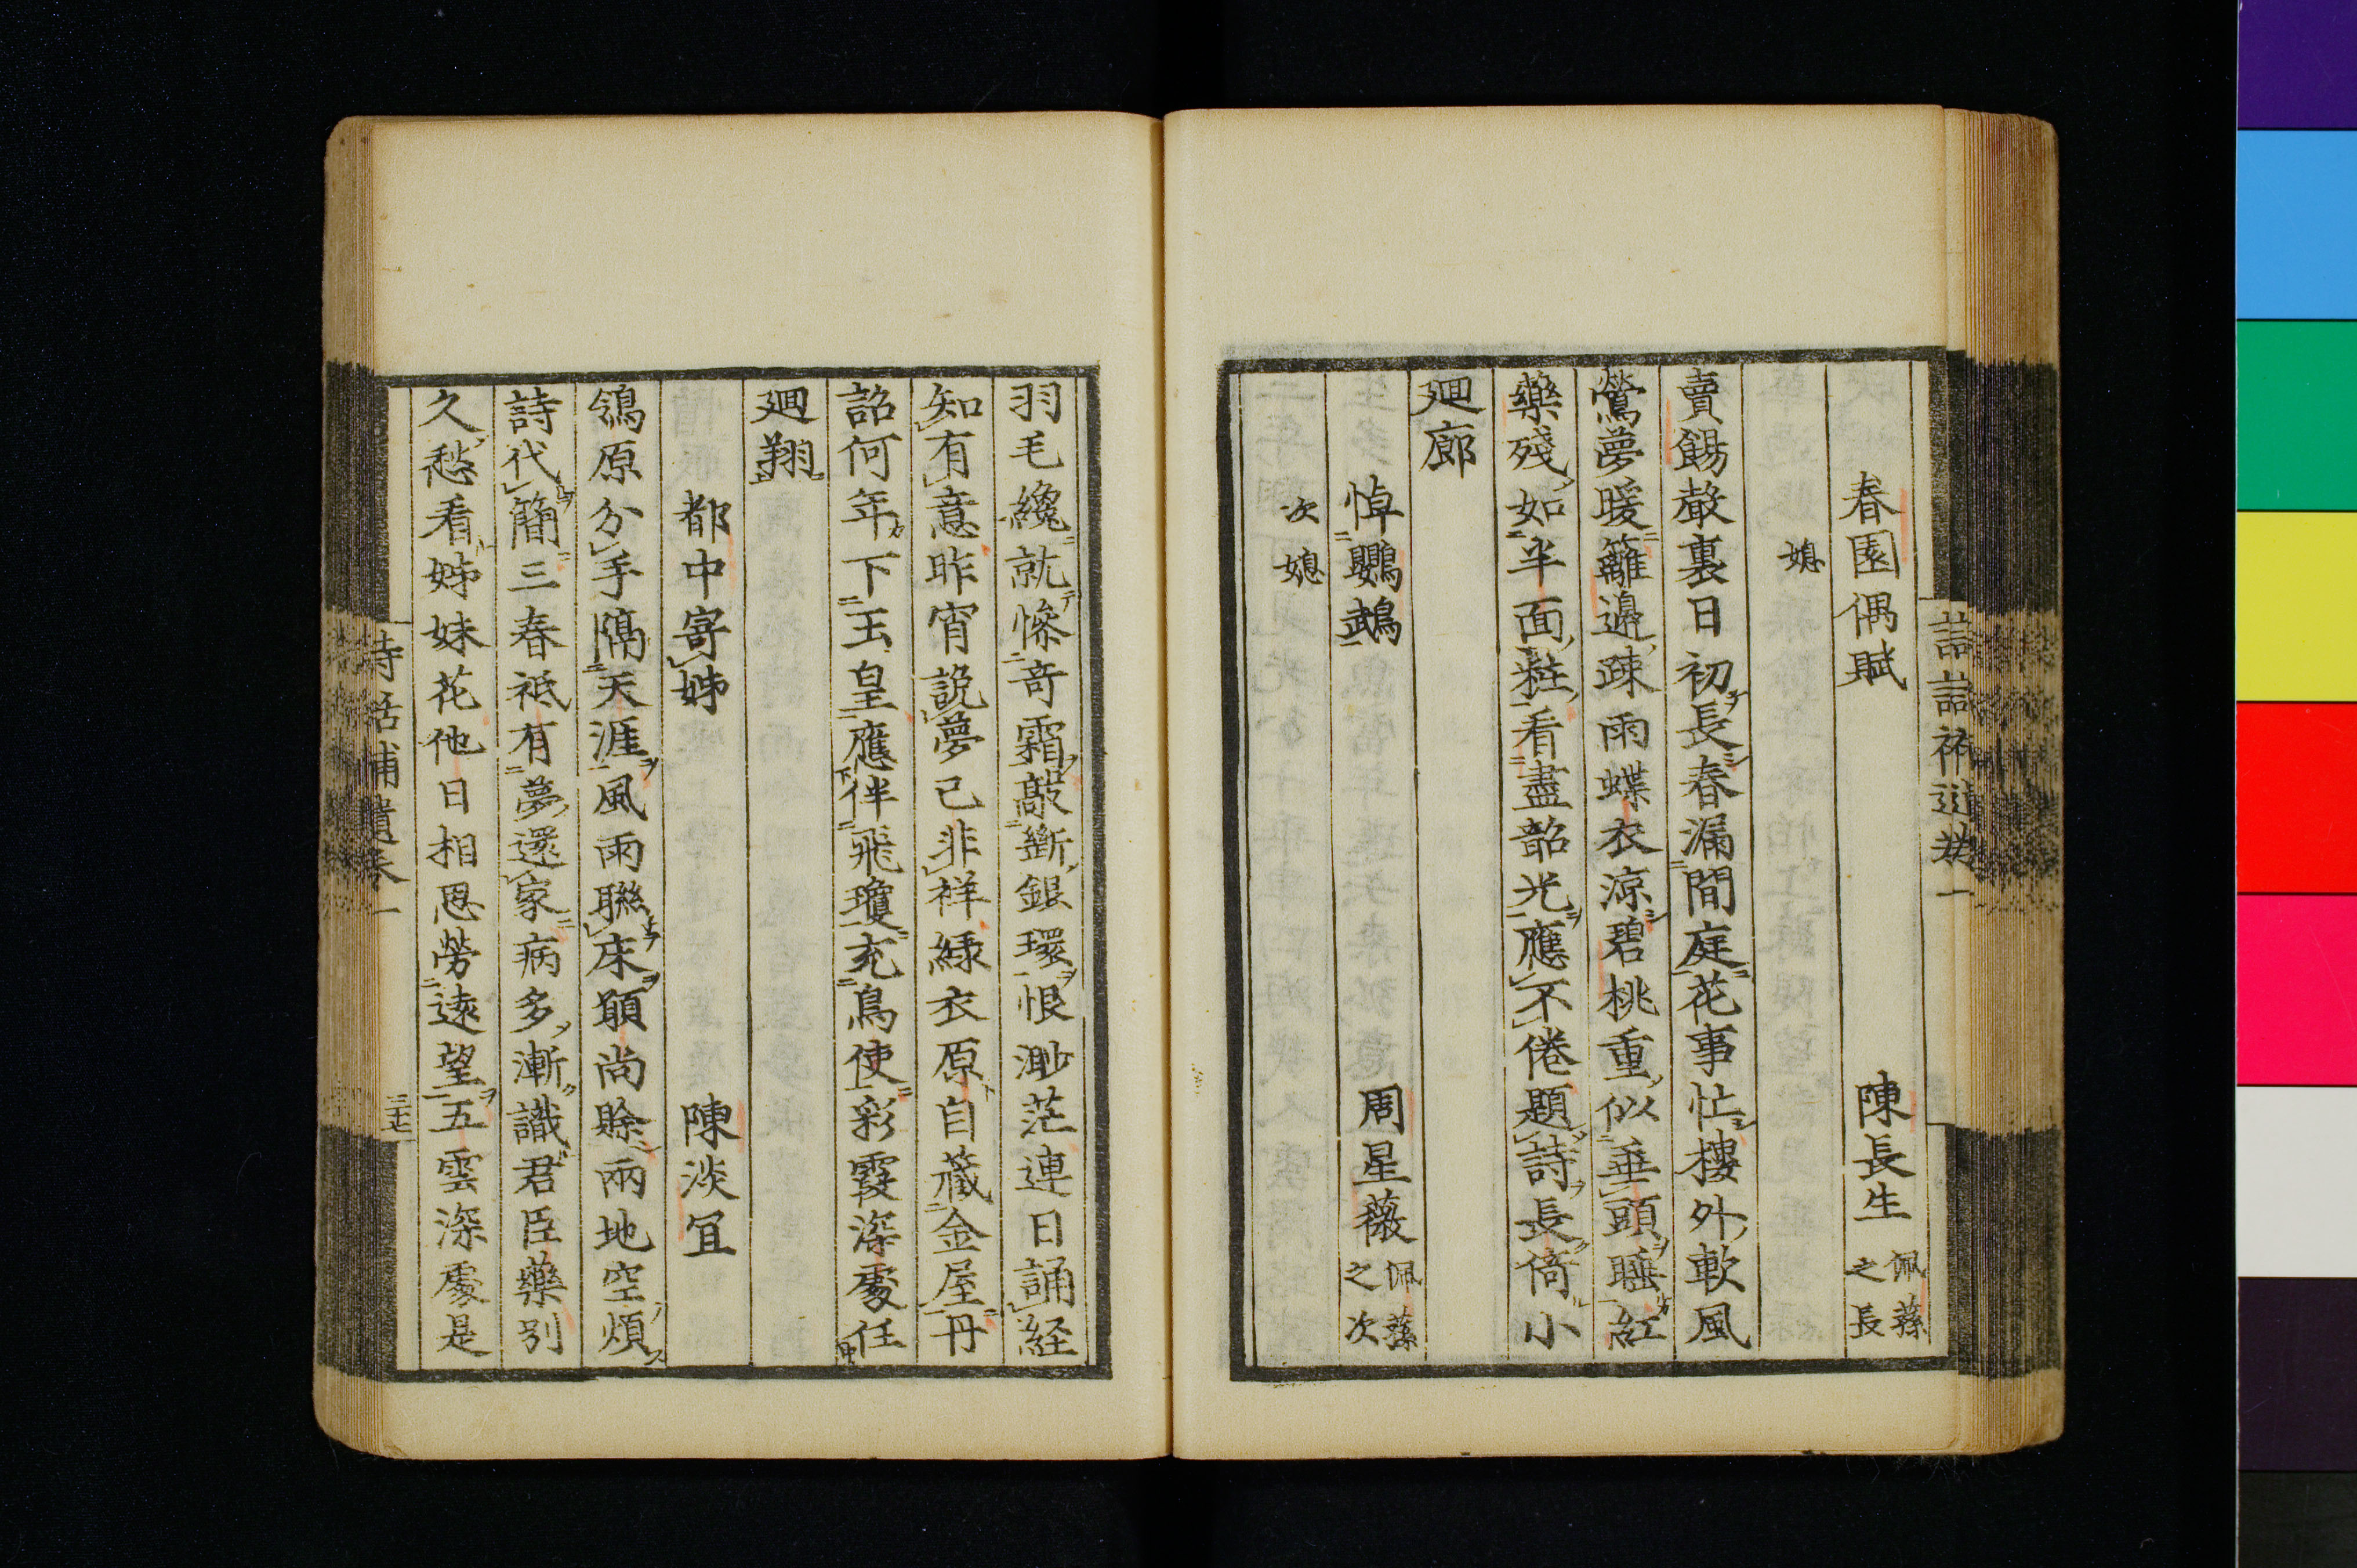 春園偶賦 陳長生 佩蓀之長
媳
賣餳聲裏日初長春漏閒庭花事忙樓外軟風
鶯夢暖籬邊疎雨蝶衣涼碧桃重似垂頭睡紅
藥殘如半面粧看盡韶光應不倦題詩長倚小
廻廊
悼鸚鵡 周星薇 佩蓀之次
次媳
羽毛纔就慘奇霜敲斷銀環恨渺茫連日誦経
知有意昨宵説夢已非祥緑衣原自藏金屋丹
詔何年下玉皇應伴飛瓊充鳥使彩霞深處任
廻翔
都中寄姊 陳淡宜
鴒原分手隔天涯風雨聯床願尚賒兩地空煩
詩代簡三春祗有夢還家病多漸識君臣藥別
久愁看姊妹花他日相思勞遠望五雲深處是
詩話補遺巻一 二十七